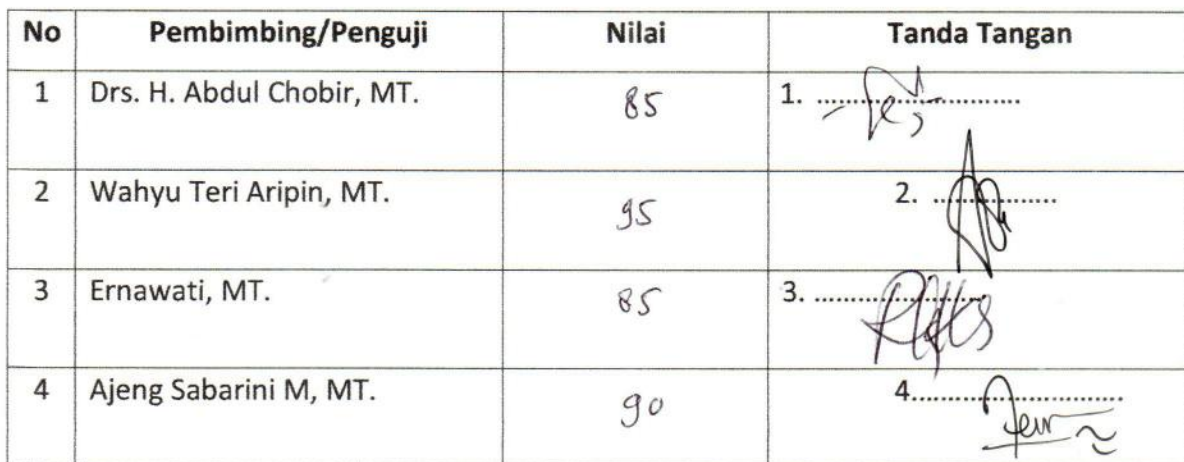 No Pembimbing/Penguji Nilai Tanda Tangan
1 Drs. H. Abdul Chobir, MT. 85 1. ....................
2 Wahyu Teri Aripin, MT. 95 2. ..............
3 Ernawati, MT. 85 3. ....................
4 Ajeng Sabarini M, MT. 90 4.....................